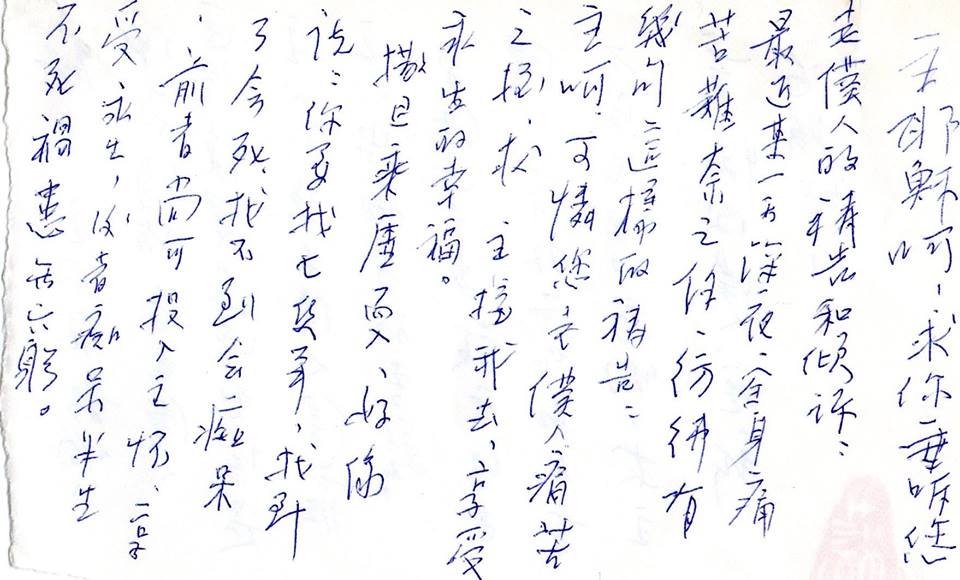 主耶穌呵，求你垂聽您
老僕人的禱告和傾訴：
最近某一天深夜全身痛
苦難奈之何，彷彿有
幾句這樣的禱告：
主呵，可憐您老僕人痛苦
之極，求主接我去，享受
永生的幸福。
撒旦乘虛而入，好像
說：你要找七只羊，找到
了會死，找不到會痴呆
，前者尚可投入主懷，享
受永生，後者痴呆半生
不死禍患無窮。